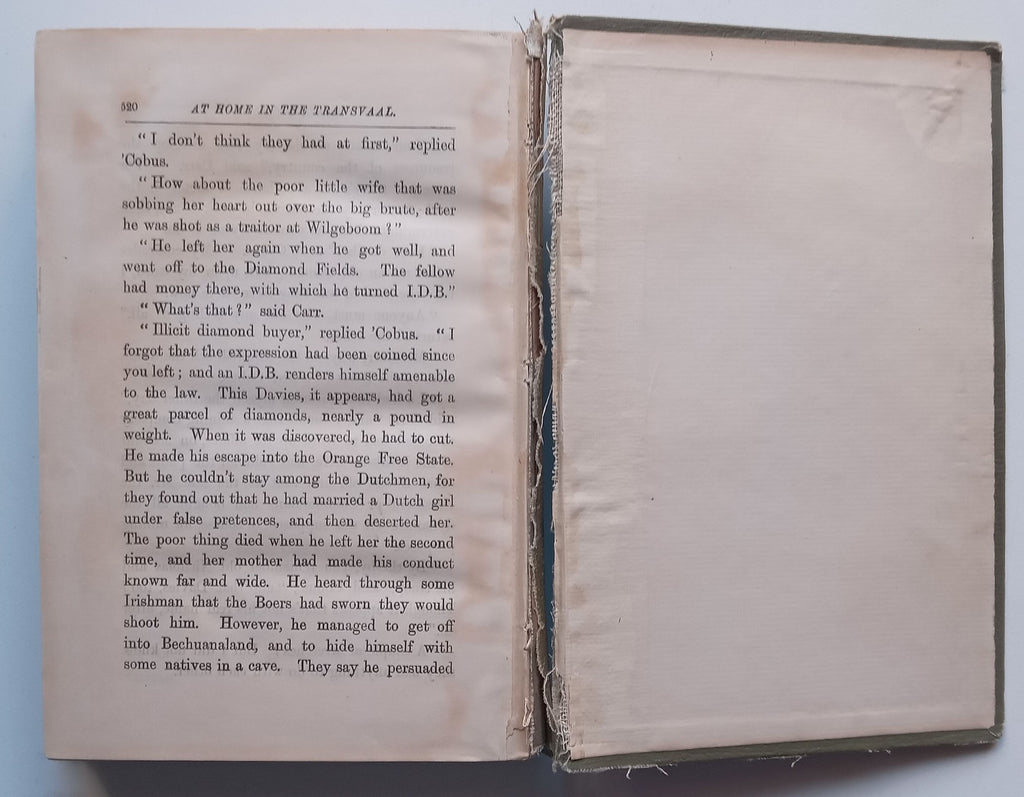 520 AT HOME IN THE TRANSVAAL.
“ I don't think they had at first,” replied
'Cobus.
“ How about the poor little wife that was
sobbing her heart out over the big brute, after
he was shot as a traitor at Wilgeboom ? ”
“ He left her again when he got well, and
went off to the Diamond Fields. The fellow
had money there, with which he turned I.D.B.”
“ What's that ? ” said Carr.
“ Illicit diamond buyer,” replied 'Cobus. “ I
forgot that the expression had been coined since
you left ; and an I.D.B. renders himself amenable
to the law. This Davies, it appears, had got a
great parcel of diamonds, nearly a pound in
weight. When it was discovered, he had to cut.
He made his escape into the Orange Free State.
But he couldn't stay among the Dutchmen, for
they found out that he had married a Dutch girl
under false pretences, and then deserted her.
The poor thing died when he left her the second
time, and her mother had made his conduct
known far and wide. He heard through some
Irishman that the Boers had sworn they would
shoot him. However, he managed to get off
into Bechuanaland, and to hide himself with
some natives in a cave. They say he persuaded